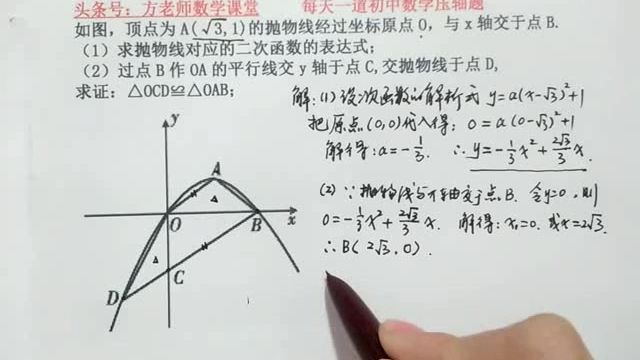 头条号：方老师数学课堂 每天一道初中数学压轴题
如图，顶点为A(√3,1)的抛物线经过坐标原点O，与x轴交于点B.
（1）求抛物线对应的二次函数的表达式；
（2）过点B作OA的平行线交y轴于点C,交抛物线于点D,
求证：△OCD≌△OAB；
解：(1)设二次函数的解析式 y=a(x-√3)²+1
把原点(0,0)代入得：0=a(0-√3)²+1
解得：a=-1/3. ∴y=-1/3x²+2√3/3x.
(2)∵抛物线与x轴交于点B. 令y=0，则
0=-1/3x²+2√3/3x. 解得：x₁=0. 或x=2√3.
∴B(2√3,0).
y
A
O
B
x
C
D